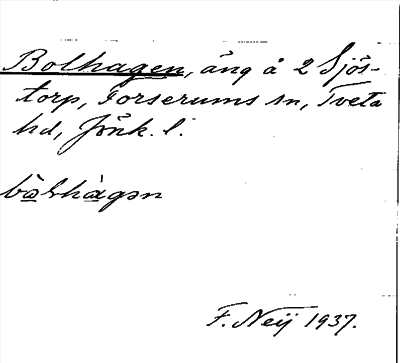 Bolhagen, äng å 2 Sjös-
torp, Forserums sn, Tveta
hd, Jönk. l.
bωlhàgən
F. Neij 1937.